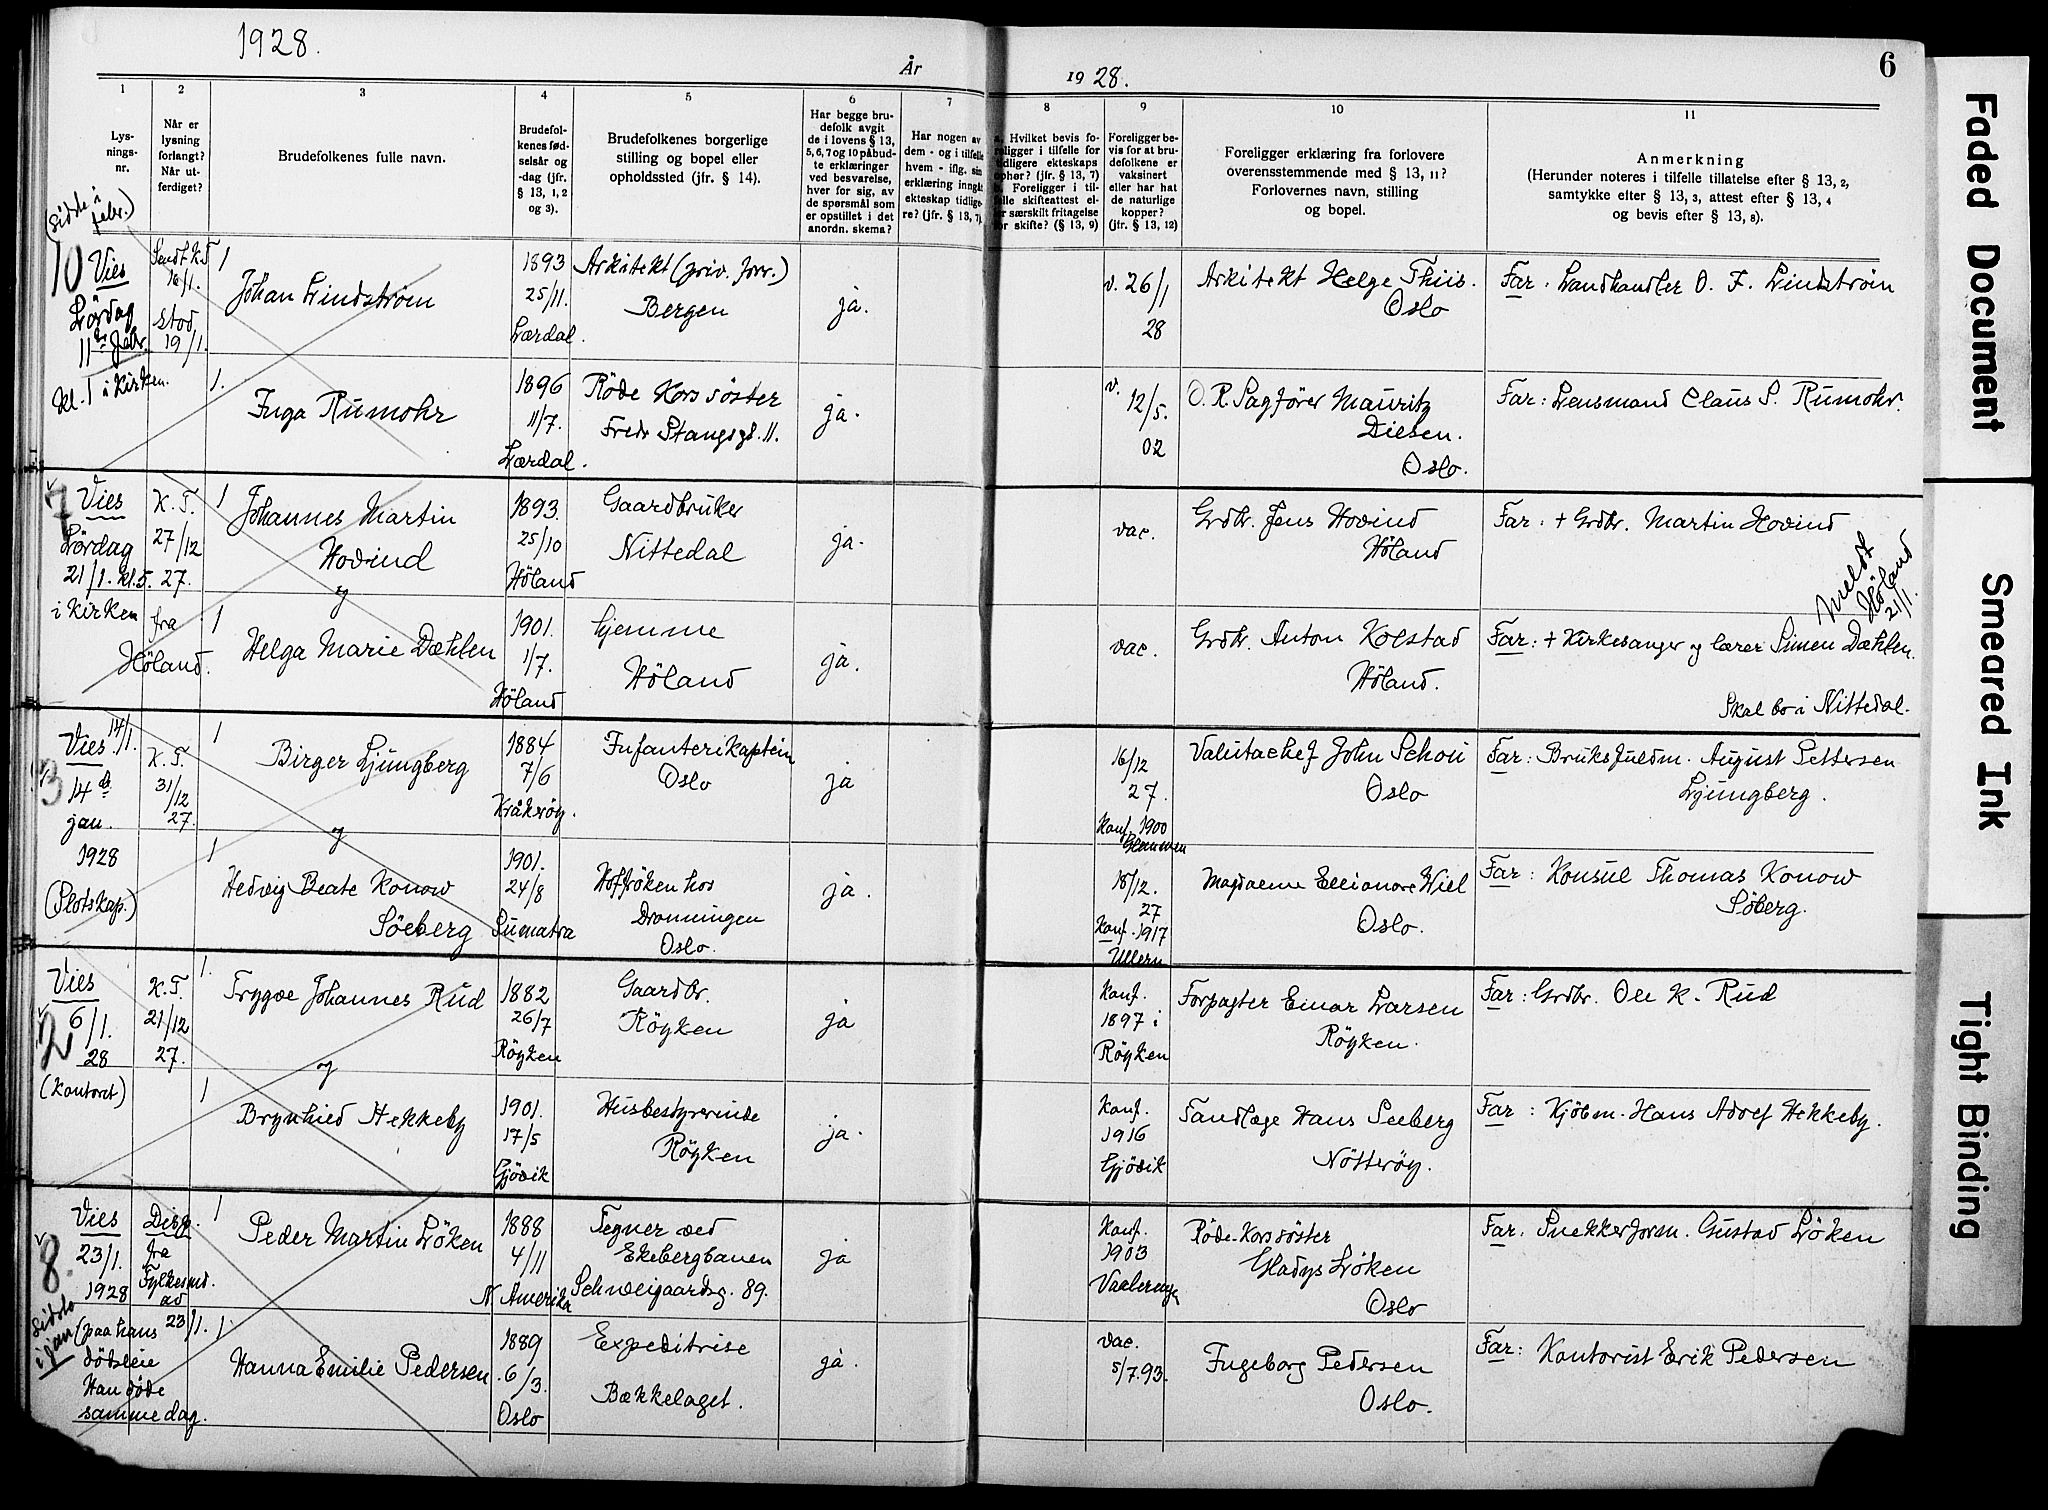 1928.
År
1928.
6
1
2
3
4
5
6
7
8
9
10
11
Lys-
nings-
nr.
Når er
lysning
forlangt?
Når ut-
ferdiget?
Brudefolkenes fulle navn.
Brudefol-
kenes fød-
selsår og
-dag (jfr.
§ 13, 1, 2
og 3).
Brudefolkenes borgerlige
stilling og bopel eller
opholdssted (jfr. § 14).
Har begge bru-
defolk avgit
de i lovens § 13,
5, 6, 7 og 10 påbud-
te erklæringer
ved besvarelse,
hver for sig, av
de spørsmål som
er opstillet i det
anordn. skema?
Har nogen av
dem - og i tilfelle
hvem - iflg. sin
erklæring inngåt
ekteskap tidlige-
re? (jfr. § 13, 7)
a. Hvilket bevis fo-
religger i tilfelle for
tidligere ekteskaps
ophør? (jfr. § 13, 7)
b. Foreligger i til-
felle skifteattest el-
ler særskilt fritagelse
for skifte? (§ 13, 9)
Foreligger be-
vis for at bru-
defolkene er
vaksinert
eller har hat
de naturlige
kopper?
(jfr. § 13, 12)
Foreligger erklæring fra forlovere
overensstemmende med § 13, 11?
Forlovernes navn, stilling
og bopel.
Anmerkning
(Herunder noteres i tilfelle tillatelse efter § 13, 2,
samtykke efter § 13, 3, attest efter § 13, 4
og bevis efter § 13, 8).
(sidde i
febr.)
10
Vies
Lördag
11te febr.
kl. 1 i Kirken.
Sendt K.T
16/1.
stod
19/1.
1
Johan Lindström
1893
25/11.
Lærdal.
Arkitekt (priv. forr.)
Bergen
ja.
v. 26/1
28
Arkitekt Helge Thiis.
Oslo
Far: Landhandler O. F. Lindström
1.
Inga Rumohr
1896
11/7.
Lærdal.
Röde Kors söster
Fredr Stangsgt. 11.
ja.
v.
12/5.
02
O. R. Sagförer Mauritz
Diesen.
Oslo.
Far: Lensmand Claus S. Rumohr.
7
Vies
Lördag
21/1. kl. 5.
i Kirken
K. T.
27/12
27.
fra
Höland.
1
Johannes Martin
Hovind
og
1893.
25/10
Höland
Gaardbruker
Nittedal
ja.
vac.
Grdbr. Jens Hovind
Höland
Far: + Grdbr. Martin Hovind
Meldt
Höland
21/1.
1
Helga Marie Dæhlen
1901.
1/7.
Höland
hjemme
Höland
ja.
vac.
Grdbr. Anton Kolstad
Höland.
Far: + Kirkesanger og lærer Simen Dæhlen.
Skal bo i Nittedal.
3
Vies 14/1.
14de
jan.
1928
(Slotskap.)
K. T.
31/12
27.
1
Birger Ljungberg
og
1884
7/6
Kråkeröy.
Infanterikaptein
Oslo
ja
16/12
27.
Konf. 1900
Glemmen
Valutachef John Schou
Oslo
Far: Bruksfuldm. August Pettersen
Ljungberg.
1
Hedvig Beate Konow
Söeberg
1901.
24/8
Sumatra
Hoffröken hos
Dronningen
Oslo.
ja.
18/12.
27
Konf. 1917
Ullern
Magdalene Ellionore Wiel
Oslo.
Far: Konsul Thomas Konow
Söberg.
2
Vies
6/1.
28
(Kontoret)
K. T.
21/12
27.
1.
Trygve Johannes Rud
og
1882
26/7
Röyken
Gaardbr.
Röyken
ja
Konf.
1897 i
Röyken
Forpagter Einar Larsen
Röyken.
Far: Grdbr. Ole K. Rud
1
Brynhild Hekkeby
1901.
17/5
Gjövik
Husbestyrerinde
Röyken
ja.
Konf.
1916
Gjövik
Tandlæge Hans Seeberg
Nötteröy.
Far: Kjöbm. Hans Adolf Hekkeby.
8.
sidde
i jan
Vies
23/1.
1928
(paa hans
dödsleie
Han döde
samme dag.
Disp.
fra
Fylkesmd.
av
23/1.
1
Peder Martin Löken
1888
4/11
N. Amerika
Tegner ved
Ekebergbanen
Schweigaardsg. 89.
ja
Konf.
1903
Vaalerengen
Röde-Korssöster
Gladys Löken
Oslo
Far: Snekkerform. Gustav Löken
1
Hanna Emilie Pedersen
1889
6/3.
Oslo
Expeditrise
Bækkelaget.
ja.
vac.
5/7.93.
Ingeborg Pedersen
Oslo.
Far: Kontorist Erik Pedersen
Faded Document
Smeared Ink
Tight Binding